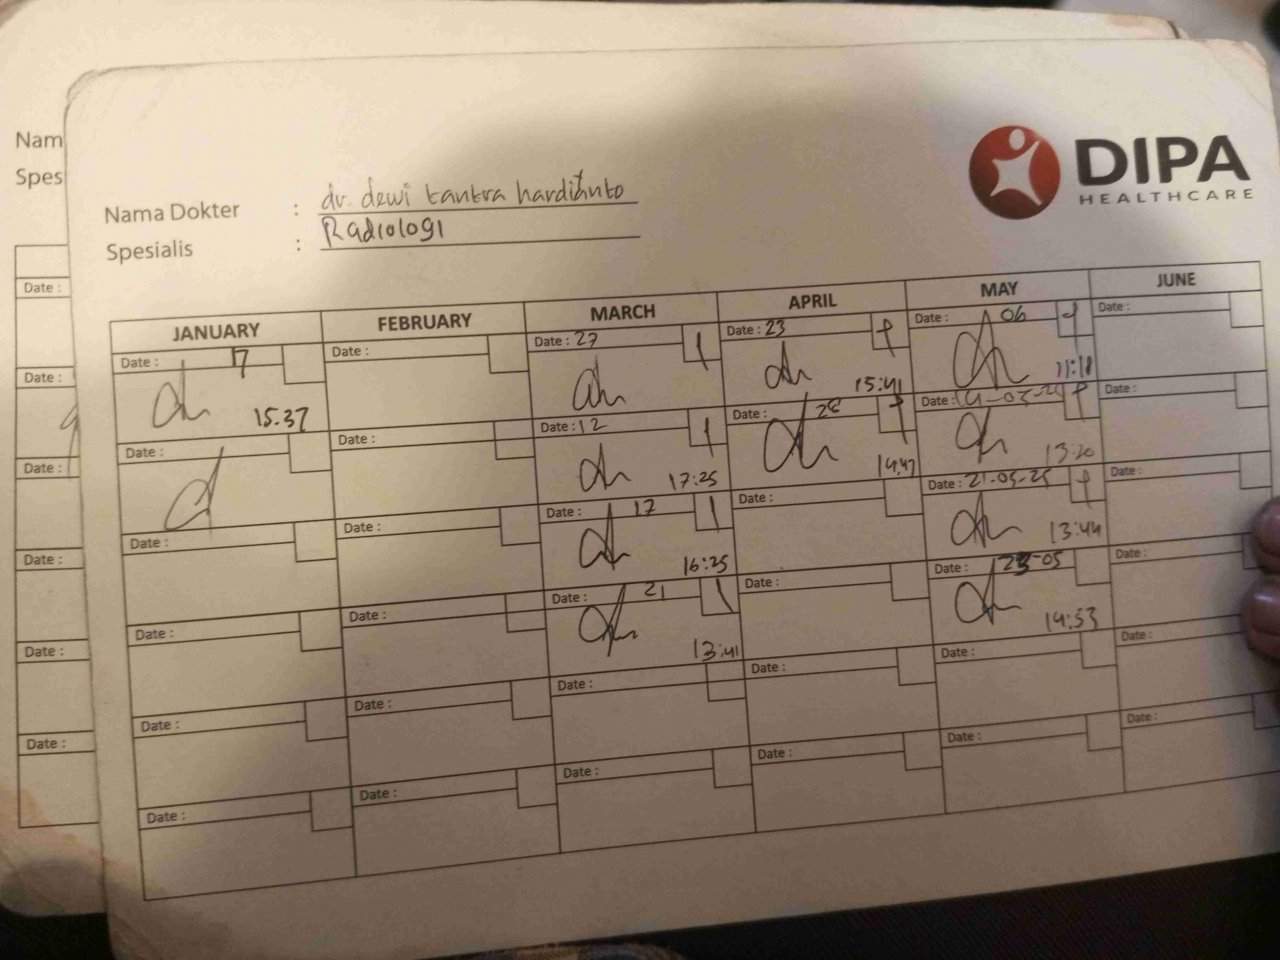 Nam
Spes
DIPA
HEALTHCARE
Nama Dokter : dr. dewi tantra hardianto
Spesialis : Radiologi
JANUARY FEBRUARY MARCH APRIL MAY JUNE
Date : 17 Date : Date : 27 Date : 23 Date : 06 Date :
15.37 15:41 11:18
Date : Date : Date : 12 Date : 28 Date : Date :
17:25 14.47 13:20
Date : Date : Date : 17 Date : Date : 21-05-25 Date :
16:25 13:44
Date : Date : Date : 21 Date : Date : 23-05 Date :
13:41 14:53
Date : Date : Date : Date : Date : Date :
Date : Date : Date : Date : Date : Date :
Date :
Date :
Date :
Date :
Date :
Date :